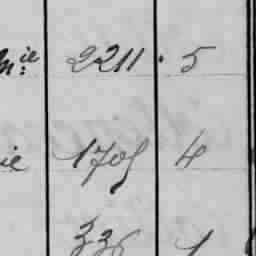 nie 2211. 5
ie 1705 4
336 1